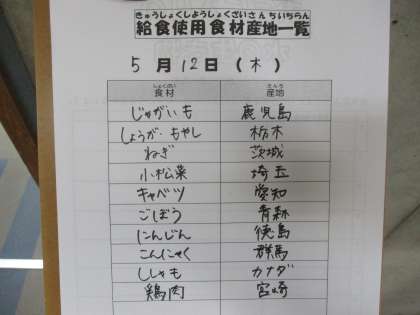 きゅうしょくしようしょくざいさんちいちらん
給食使用食材産地一覧
5月12日(木)
しょくざい さんち
食材 産地
じゃがいも 鹿児島
しょうが・もやし 栃木
ねぎ 茨城
小松菜 埼玉
キャベツ 愛知
ごぼう 青森
にんじん 徳島
こんにゃく 群馬
ししゃも カナダ
鶏肉 宮崎